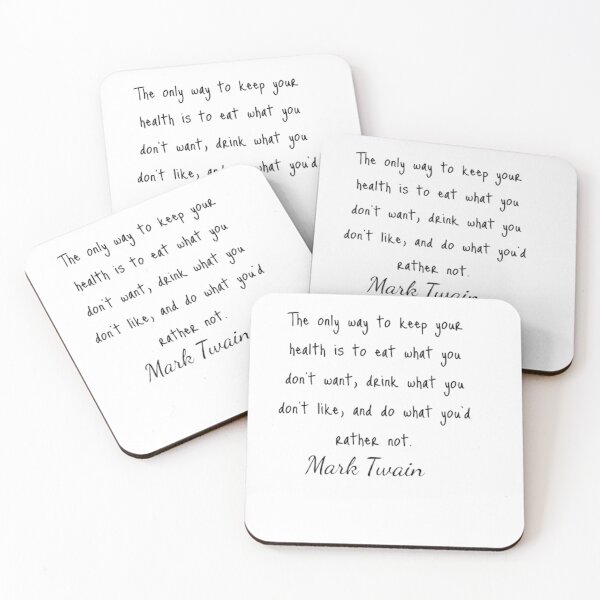 The only way to keep your
health is to eat what you
don't want, drink what you
don't like, and what you'd
The only way to keep your
health is to eat what you
don't want, drink what you
don't like, and do what you'd
rather not.
Mark Twain
The only way to keep your
health is to eat what you
don't want, drink what you
don't like, and do what you'd
rather not.
Mark Twain
The only way to keep your
health is to eat what you
don't want, drink what you
don't like, and do what you'd
rather not.
Mark Twain